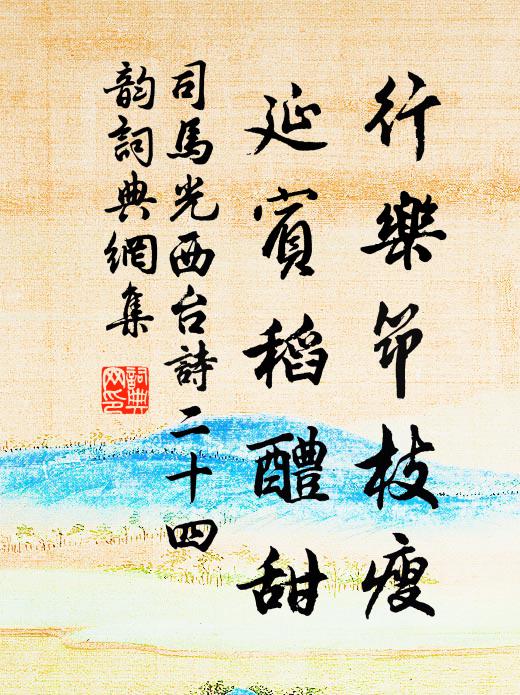 行樂筇枝瘦
延賓稻醴甜
司馬光西台詩二十四
韵詞典網集
詞典網印